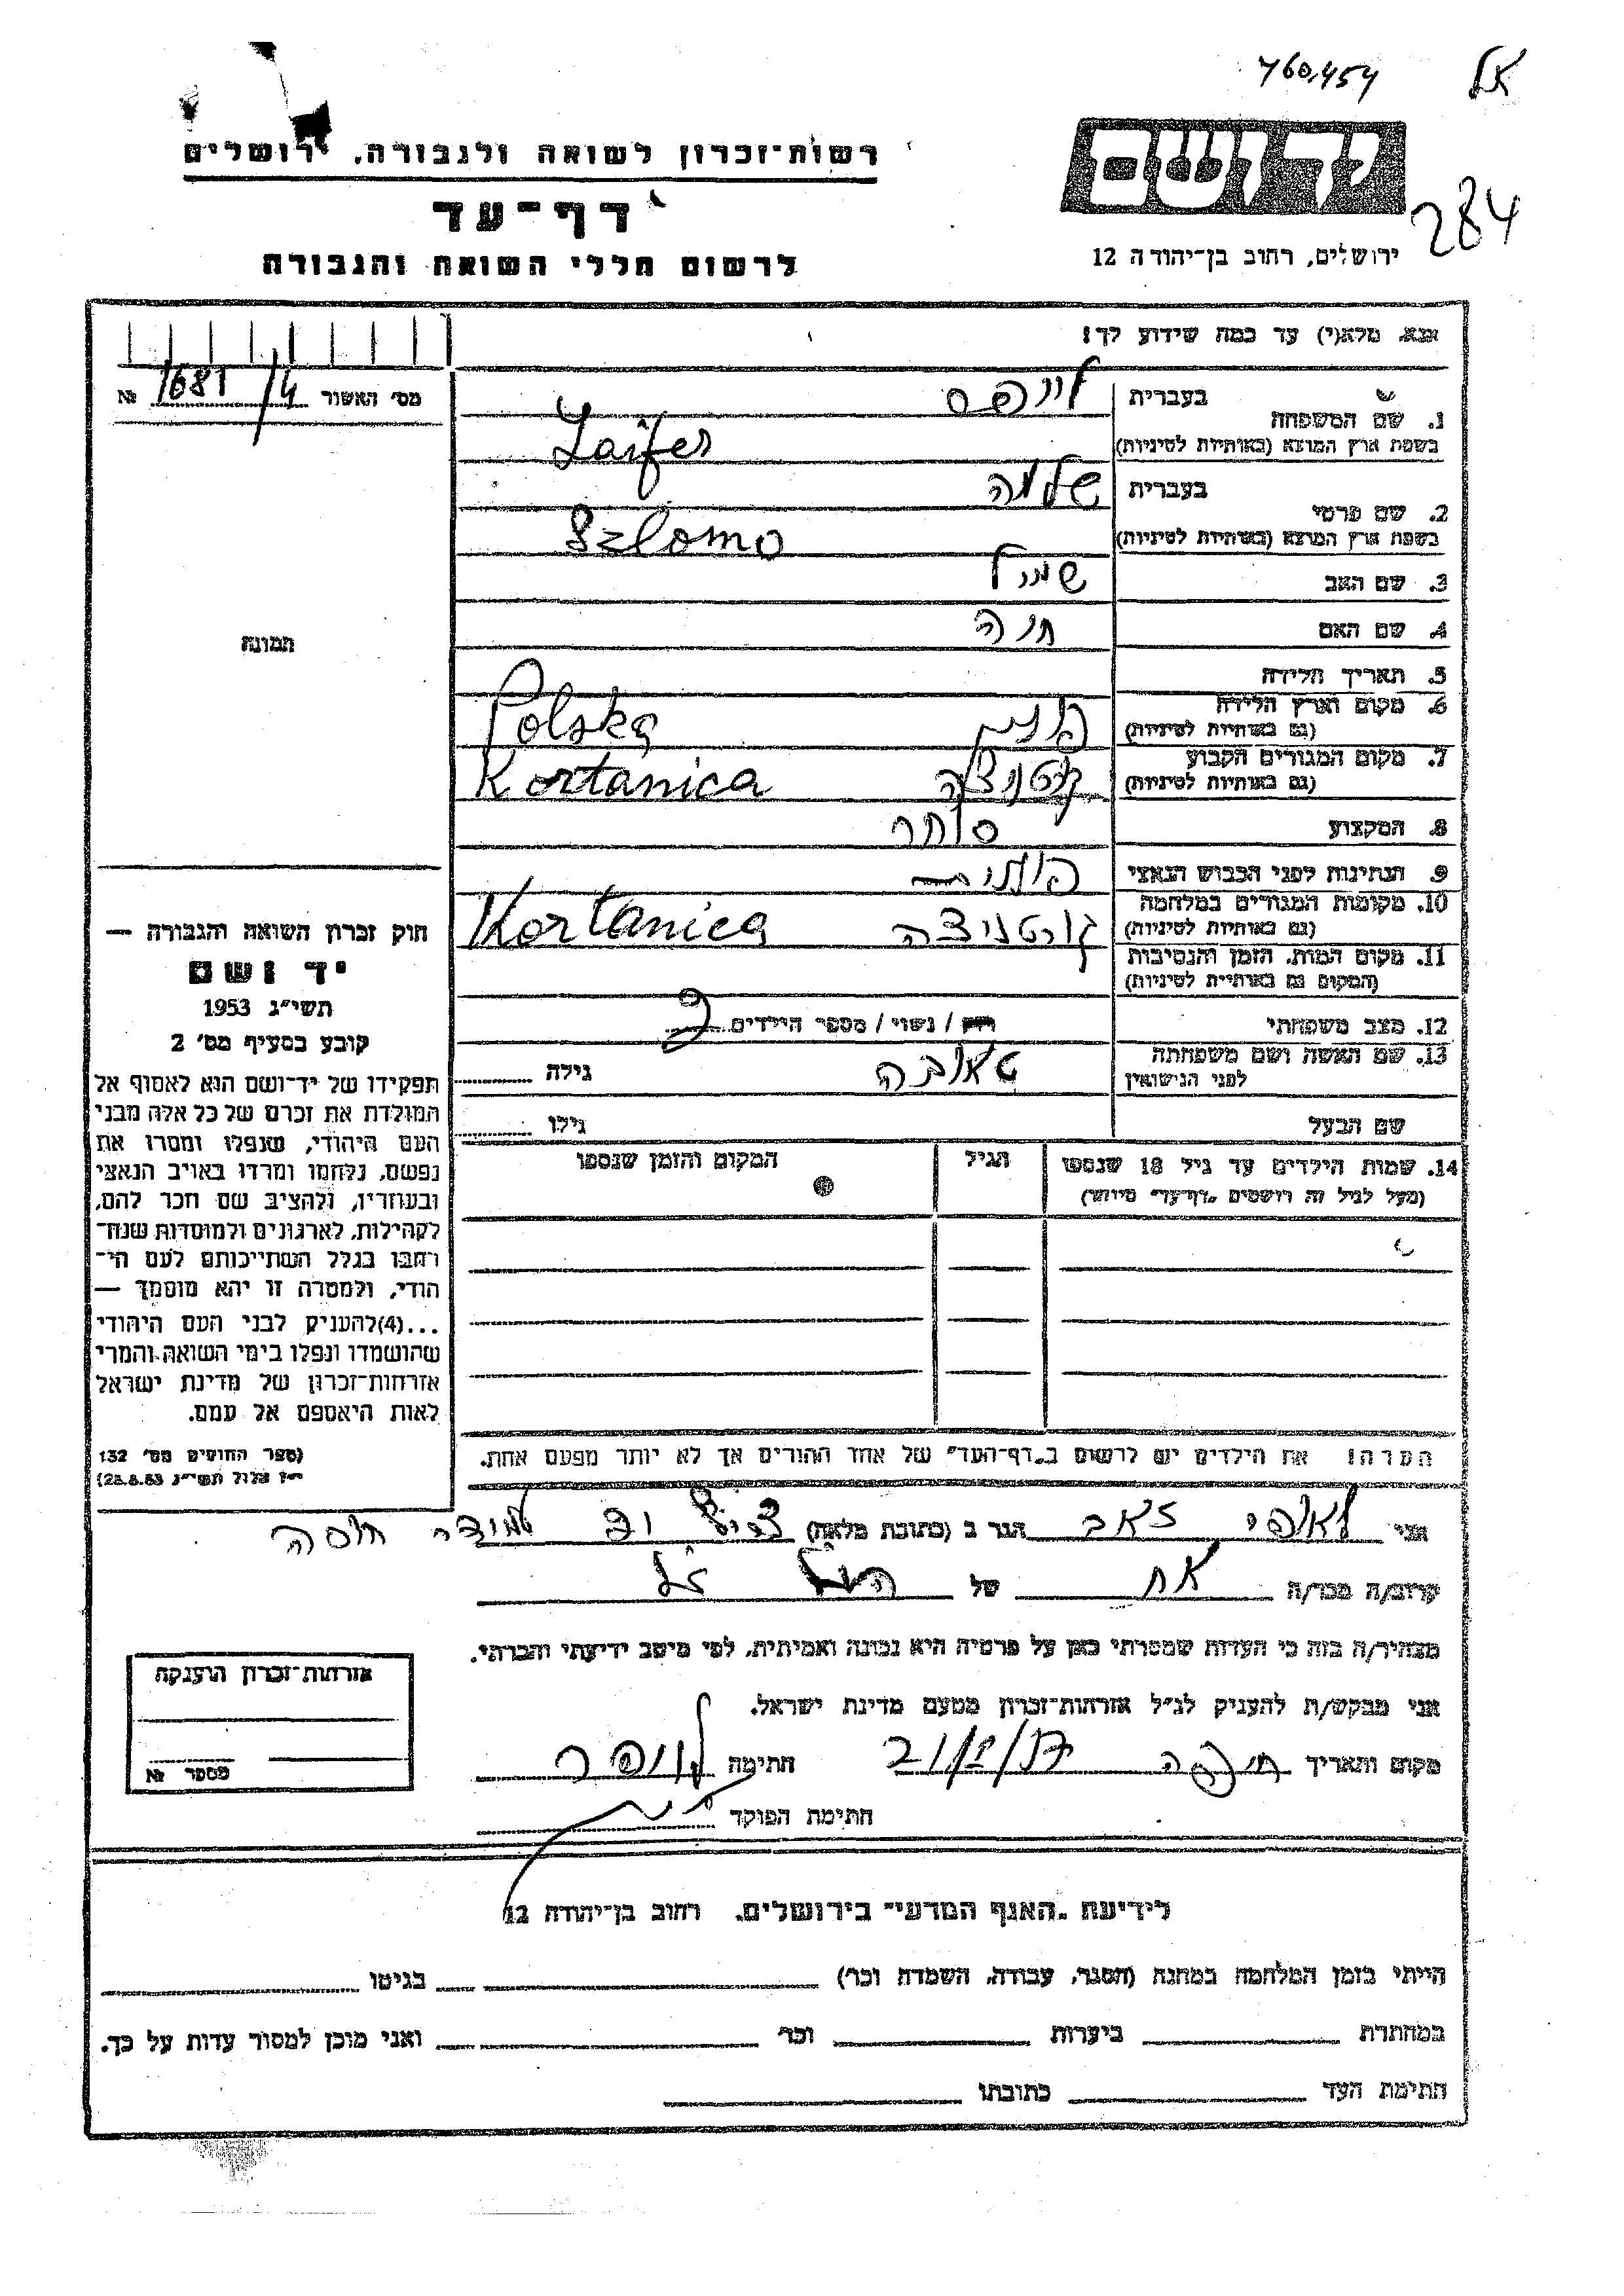 760,454
אל
רשות־זכרון לשואה ולגבורה, ירושלים
דף־עד
לרשום חללי השואה והגבורה
יד ושם
284
ירושלים, רחוב בן־יהודה 12
אנא, מלא(י) עד כמה שידוע לך!
מס׳ האשור 1681/4 №
1. שם המשפחה
בעברית לייפר
בשפת ארץ המוצא (באותיות לטיניות) Laifer
2. שם פרטי
בעברית שלמה
בשפת ארץ המוצא (באותיות לטיניות) Szlomo
3. שם האב
4. שם האם חנה
5. תאריך הלידה
6. מקום וארץ הלידה
(גם באותיות לטיניות) פולין Polska
7. מקום המגורים הקבוע
(גם באותיות לטיניות) Kortanica
8. המקצוע סוחר
9. הנתינות לפני הכבוש הנאצי
10. מקומות המגורים במלחמה
(גם באותיות לטיניות) קורטניצה Kortanica
11. מקום המות, הזמן והנסיבות
(המקום גם באותיות לטיניות)
12. מצב משפחתי רווק / נשוי / מספר הילדים
13. שם האשה ושם משפחתה
לפני הנישואין טאובה גילה
שם הבעל גילו
14. שמות הילדים עד גיל 18 שנספו
(מעל לגיל זה רושמים „דף־עד״ מיוחד)
הגיל
המקום והזמן שנספו
הערה! את הילדים יש לרשום ב„דף־העד״ של אחד ההורים אך לא יותר מפעם אחת.
תמונה
חוק זכרון השואה והגבורה —
יד ושם
תשי״ג 1953
קובע בסעיף מס׳ 2
תפקידו של יד־ושם הוא לאסוף אל
המולדת את זכרם של כל אלה מבני
העם היהודי, שנפלו ומסרו את
נפשם, נלחמו ומרדו באויב הנאצי
ובעוזריו, ולהציב שם וזכר להם,
לקהילות, לארגונים ולמוסדות שנח־
רבו בגלל השתייכותם לעם הי־
הודי, ולמטרה זו יהא מוסמך —
...(4) להעניק לבני העם היהודי
שהושמדו ונפלו בימי השואה והמרי
אזרחות־זכרון של מדינת ישראל
לאות היאספם אל עמם.
(ספר החוקים מס׳ 132
י״ז אלול תשי״ג 28.8.53)
אני זאב הגר ב (כתובת מלאה)
קרוב/ה מכר/ה אח של הנ״ל
מצהיר/ה בזה כי העדות שמסרתי כאן על פרטיה היא נכונה ואמיתית, לפי מיטב ידיעתי והכרתי.
אני מבקש/ת להעניק לנ״ל אזרחות־זכרון מטעם מדינת ישראל.
מקום ותאריך חיפה חתימה
חתימת הפוקד
אזרחות־זכרון הוענקה
מספר №
לידיעת „האגף המדעי״ בירושלים, רחוב בן־יהודה 12
הייתי בזמן המלחמה במחנה (הסגר, עבודה, השמדה וכו׳) בגיטו
במחתרת ביערות וכו׳ ואני מוכן למסור עדות על כך.
חתימת העד כתובתו